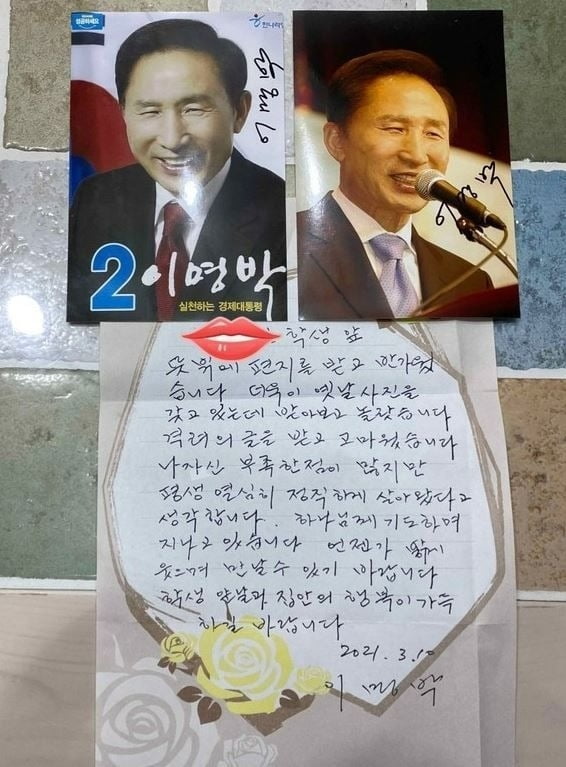 성공하세요
한나라
2 이명박
실천하는 경제대통령
이명박
학생 앞
뜻밖에 편지를 받고 반가웠
습니다 더욱이 옛날 사진을
갖고 있는데 받아보고 놀랐습니다
격려의 글을 받고 고마웠습니다
나 자신 부족한 점이 많지만
평생 열심히 정직하게 살아왔다고
생각합니다. 하나님께 기도하며
지나고 있습니다 언젠가 밝게
웃으며 만날 수 있기 바랍니다
학생 앞날과 집안의 행복이 가득
하길 바랍니다
2021. 3. 10
이명박